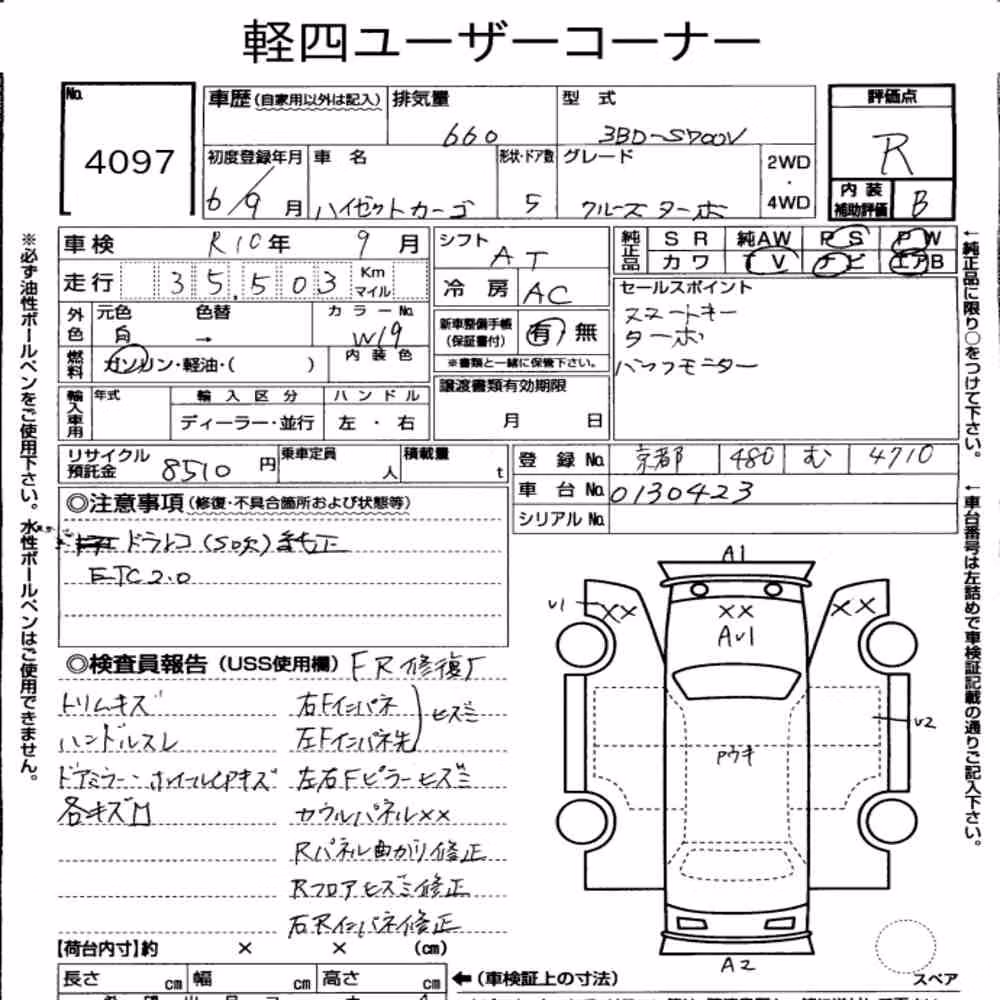 軽四ユーザーコーナー
No.
4097
車歴(自家用以外は記入)
排気量
660
型 式
3BD-S700V
評価点
R
初度登録年月
6/9月
車 名
ハイゼットカーゴ
形状・ドア数
5
グレード
クルーズ ターボ
2WD
・
4WD
内 装
補助評価
B
車検 R10年 9月
シフト AT
純正品
SR 純AW PS PW
カワ TV ナビ エアB
走行 35,503 Km
マイル
冷房 AC
セールスポイント
スマートキー
ターボ
バックモニター
外色
元色 白
色替 →
カラーNo. W19
新車整備手帳
(保証書付)
有 無
※書類と一緒に保管下さい。
燃料
ガソリン・軽油・( )
内装色
譲渡書類有効期限
月 日
輸入車用
年式
輸入区分
ディーラー・並行
ハンドル
左・右
リサイクル
預託金
8510円
乗車定員
人
積載量
t
登録No. 京都 480 む 4710
車台No. 0130423
シリアルNo.
◎注意事項(修復・不具合箇所および状態等)
ドラレコ(SD欠)純正
ETC2.0
◎検査員報告(USS使用欄) FR修復F
トリムキズ
ハンドルスレ
ドアミラー・ホイールCPキズ
各キズ凹
右Fインパネ
左Fインパネ先
ヒズミ
左右Fピラーヒズミ
カウルパネル××
Rパネル曲がり修正
Rフロアヒズミ修正
右Rインパネ修正
A1
U1
××
××
××
AU1
U2
Pウキ
A2
スペア
【荷台内寸】約 × × (cm)
長さ cm 幅 cm 高さ cm
←(車検証上の寸法)
※必ず油性ボールペンをご使用下さい。水性ボールペンはご使用できません。
←純正品に限り○をつけて下さい。
←車台番号は左詰めで車検証記載の通りご記入下さい。